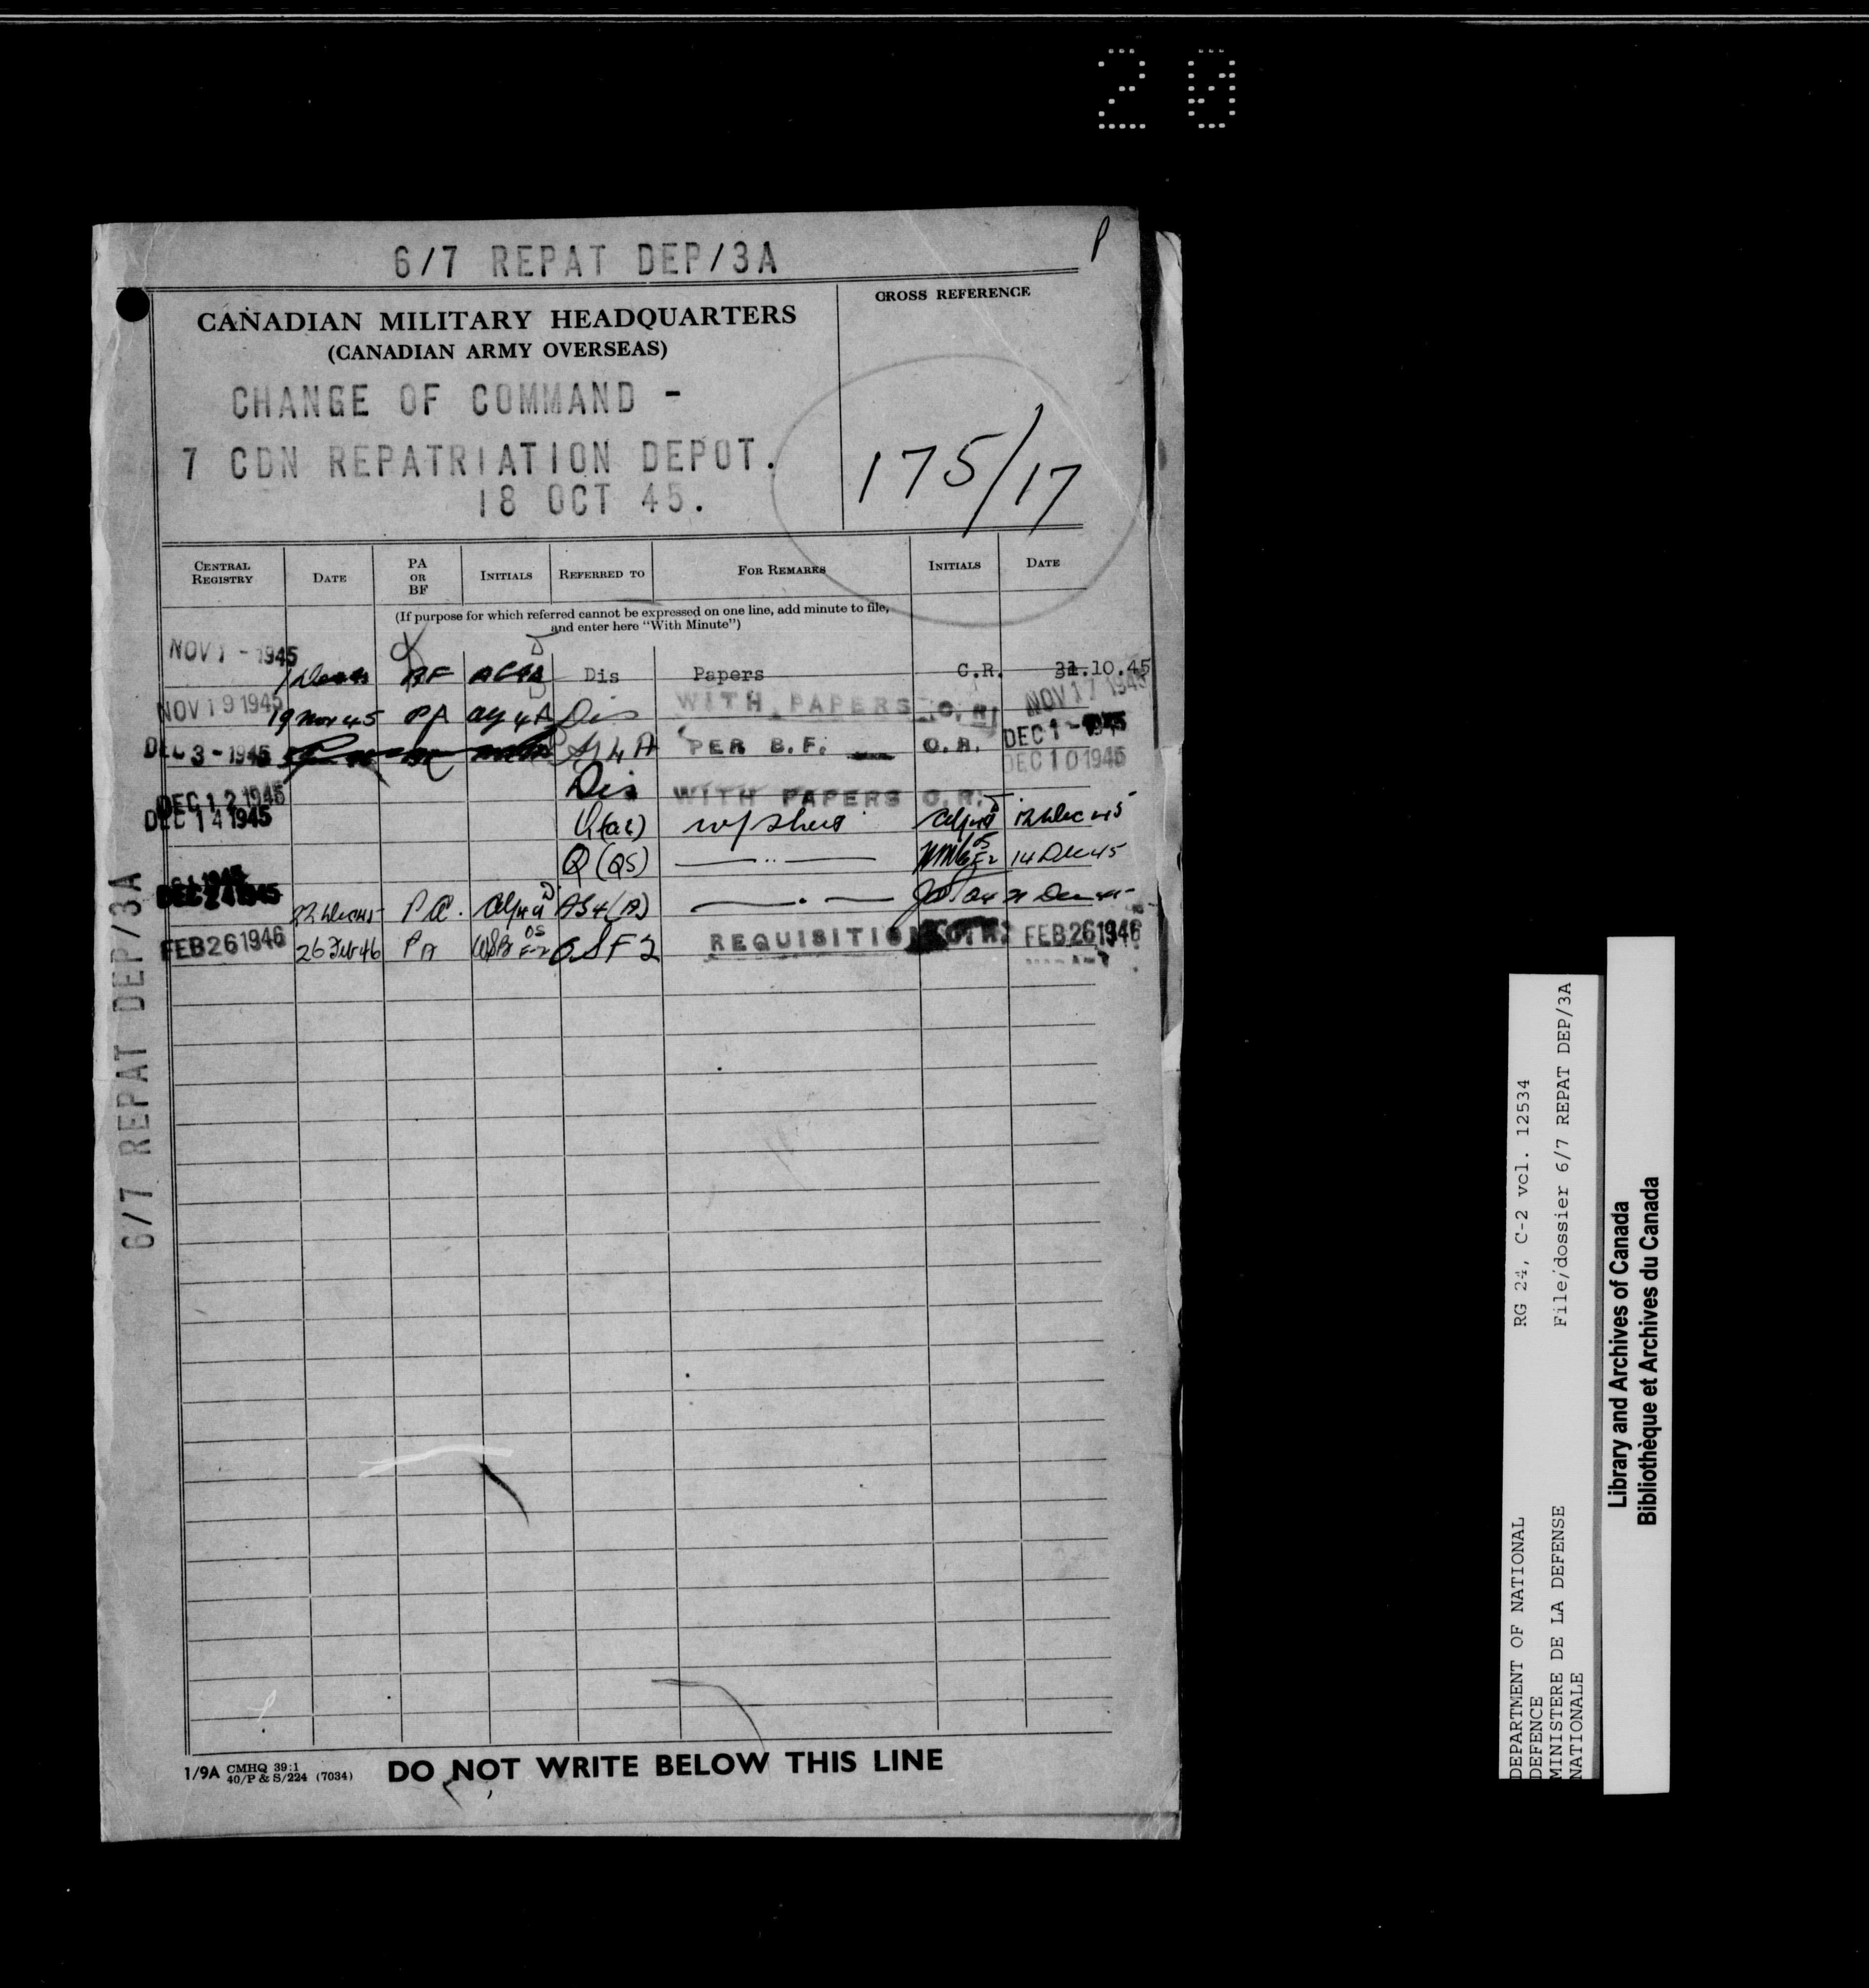 20
P
6/7 REPAT DEP/3A
CANADIAN MILITARY HEADQUARTERS
(CANADIAN ARMY OVERSEAS)
CROSS REFERENCE
CHANGE OF COMMAND -
7 CDN REPATRIATION DEPOT.
18 OCT 45.
175/17
CENTRAL REGISTRY DATE PA OR BF INITIALS REFERRED TO FOR REMARKS INITIALS DATE
(If purpose for which referred cannot be expressed on one line, add minute to file,
and enter here "With Minute")
NOV 1 - 1945 BF Dis Papers C.R. 31.10.45
NOV 19 1945 19 Nov 45 PA Dis WITH PAPERS C.R. NOV 17 1945
DEC 3 - 1945 PER B.F. C.R. DEC 1 - 1945
DEC 10 1945
DEC 12 1945 Dis WITH PAPERS C.R.
DEC 14 1945 12 Dec 45
Q (QS) 14 Dec 45
DEC 24 1945 22 Dec 45 PA. AS4(A)
FEB 26 1946 26 Feb 46 PA OSF2 REQUISITION C.R. FEB 26 1946
6/7 REPAT DEP/3A
1/9A CMHQ 39:1
40/P & S/224 (7034)
DO NOT WRITE BELOW THIS LINE
DEPARTMENT OF NATIONAL
DEFENCE
MINISTERE DE LA DEFENSE
NATIONALE
RG 24, C-2 vol. 12534
File/dossier 6/7 REPAT DEP/3A
Library and Archives of Canada
Bibliothèque et Archives du Canada